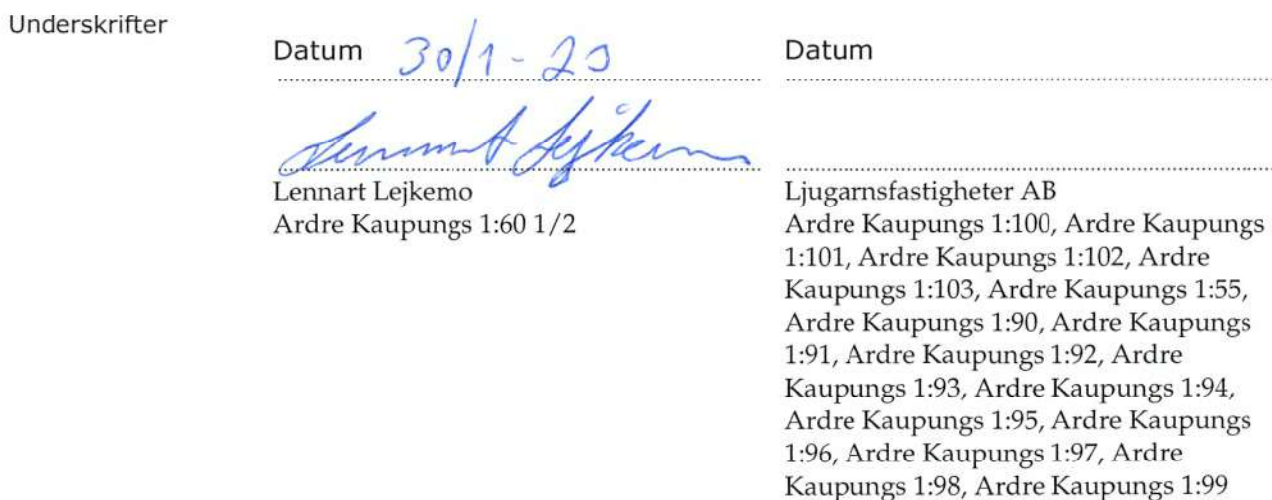 Underskrifter
Datum 30/1-20
Datum
Lennart Lejkemo
Lennart Lejkemo
Ardre Kaupungs 1:60 1/2
Ljugarnsfastigheter AB
Ardre Kaupungs 1:100, Ardre Kaupungs
1:101, Ardre Kaupungs 1:102, Ardre
Kaupungs 1:103, Ardre Kaupungs 1:55,
Ardre Kaupungs 1:90, Ardre Kaupungs
1:91, Ardre Kaupungs 1:92, Ardre
Kaupungs 1:93, Ardre Kaupungs 1:94,
Ardre Kaupungs 1:95, Ardre Kaupungs
1:96, Ardre Kaupungs 1:97, Ardre
Kaupungs 1:98, Ardre Kaupungs 1:99